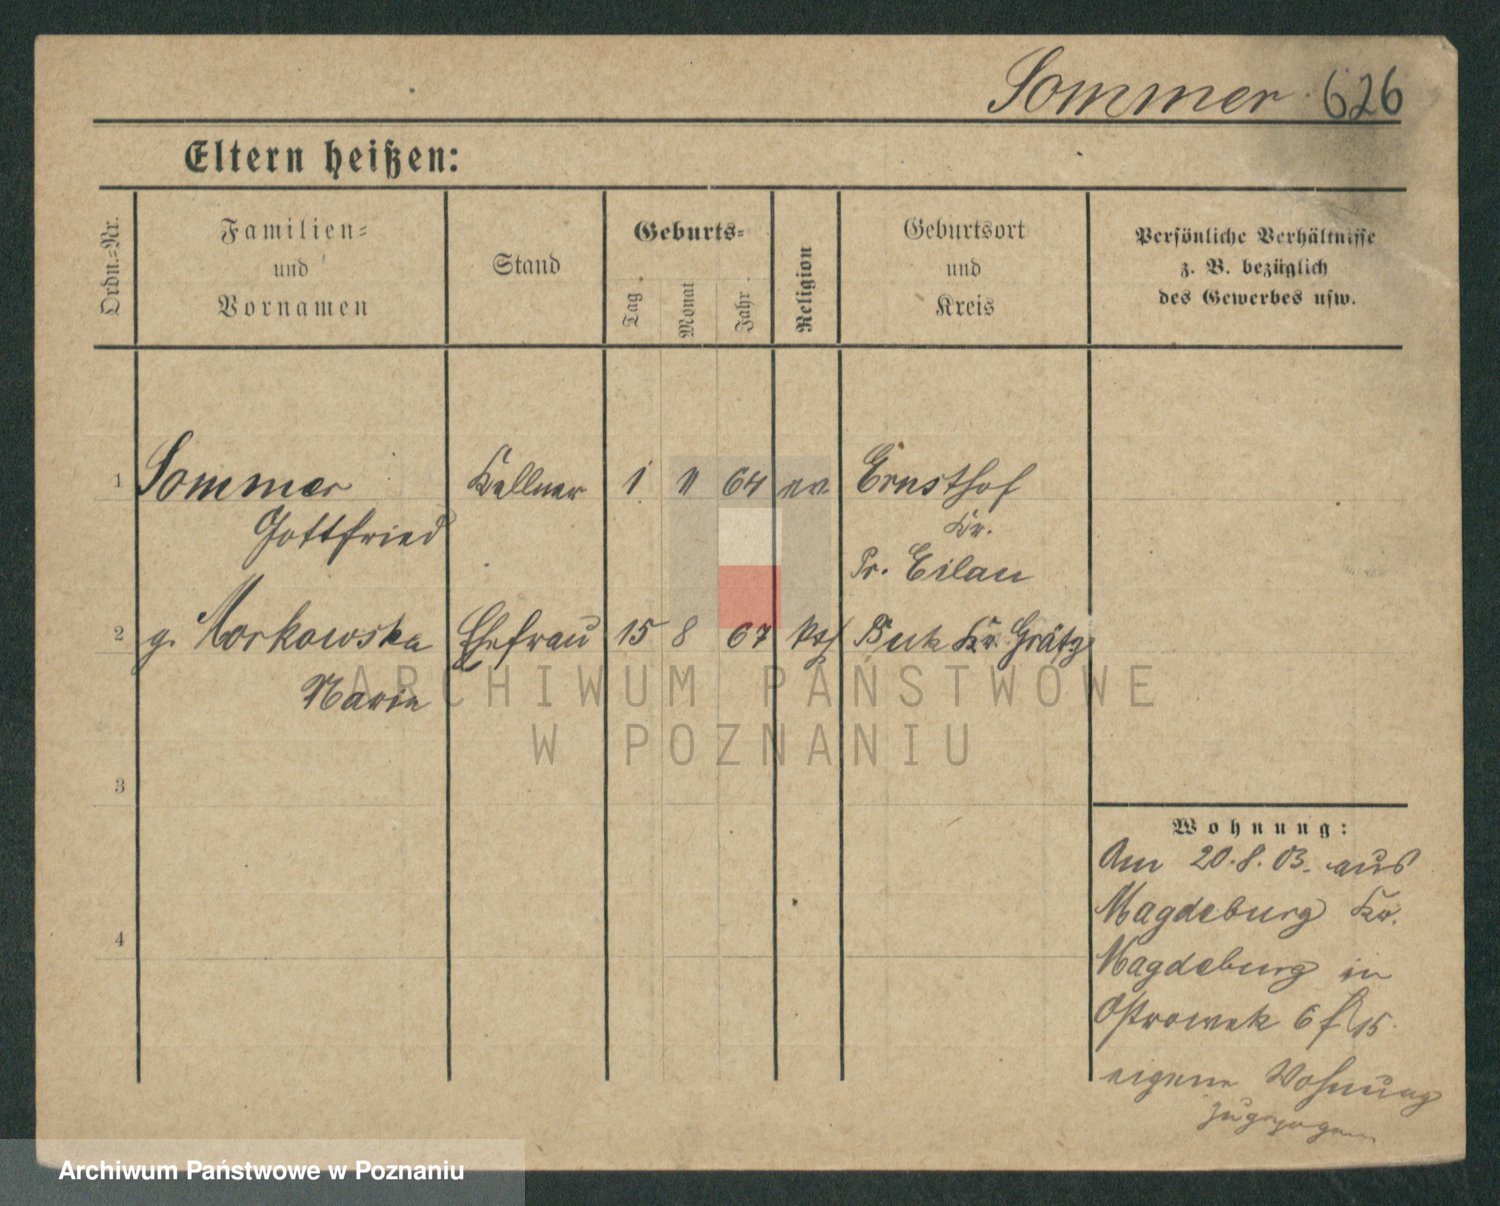 Sommer 626
Eltern heißen:
Ordn.-Nr.
Familien-
und
Vornamen
Stand
Geburts-
Tag
Monat
Jahr
Religion
Geburtsort
und
Kreis
Persönliche Verhältnisse
z. B. bezüglich
des Gewerbes usw.
1 Sommer Kellner 1 11 64 ev. Ernsthof
Gottfried Kr.
Pr. Eilau
2 g. Morkowska Ehefrau 15 8 67 kth Buk Kr. Grätz
Maria
3
4
Wohnung:
Am 20.8.03. aus
Magdeburg Kr.
Magdeburg in
Ostrowek 6 15
eigene Wohnung
zugezogen
ARCHIWUM PAŃSTWOWE
W POZNANIU
Archiwum Państwowe w Poznaniu